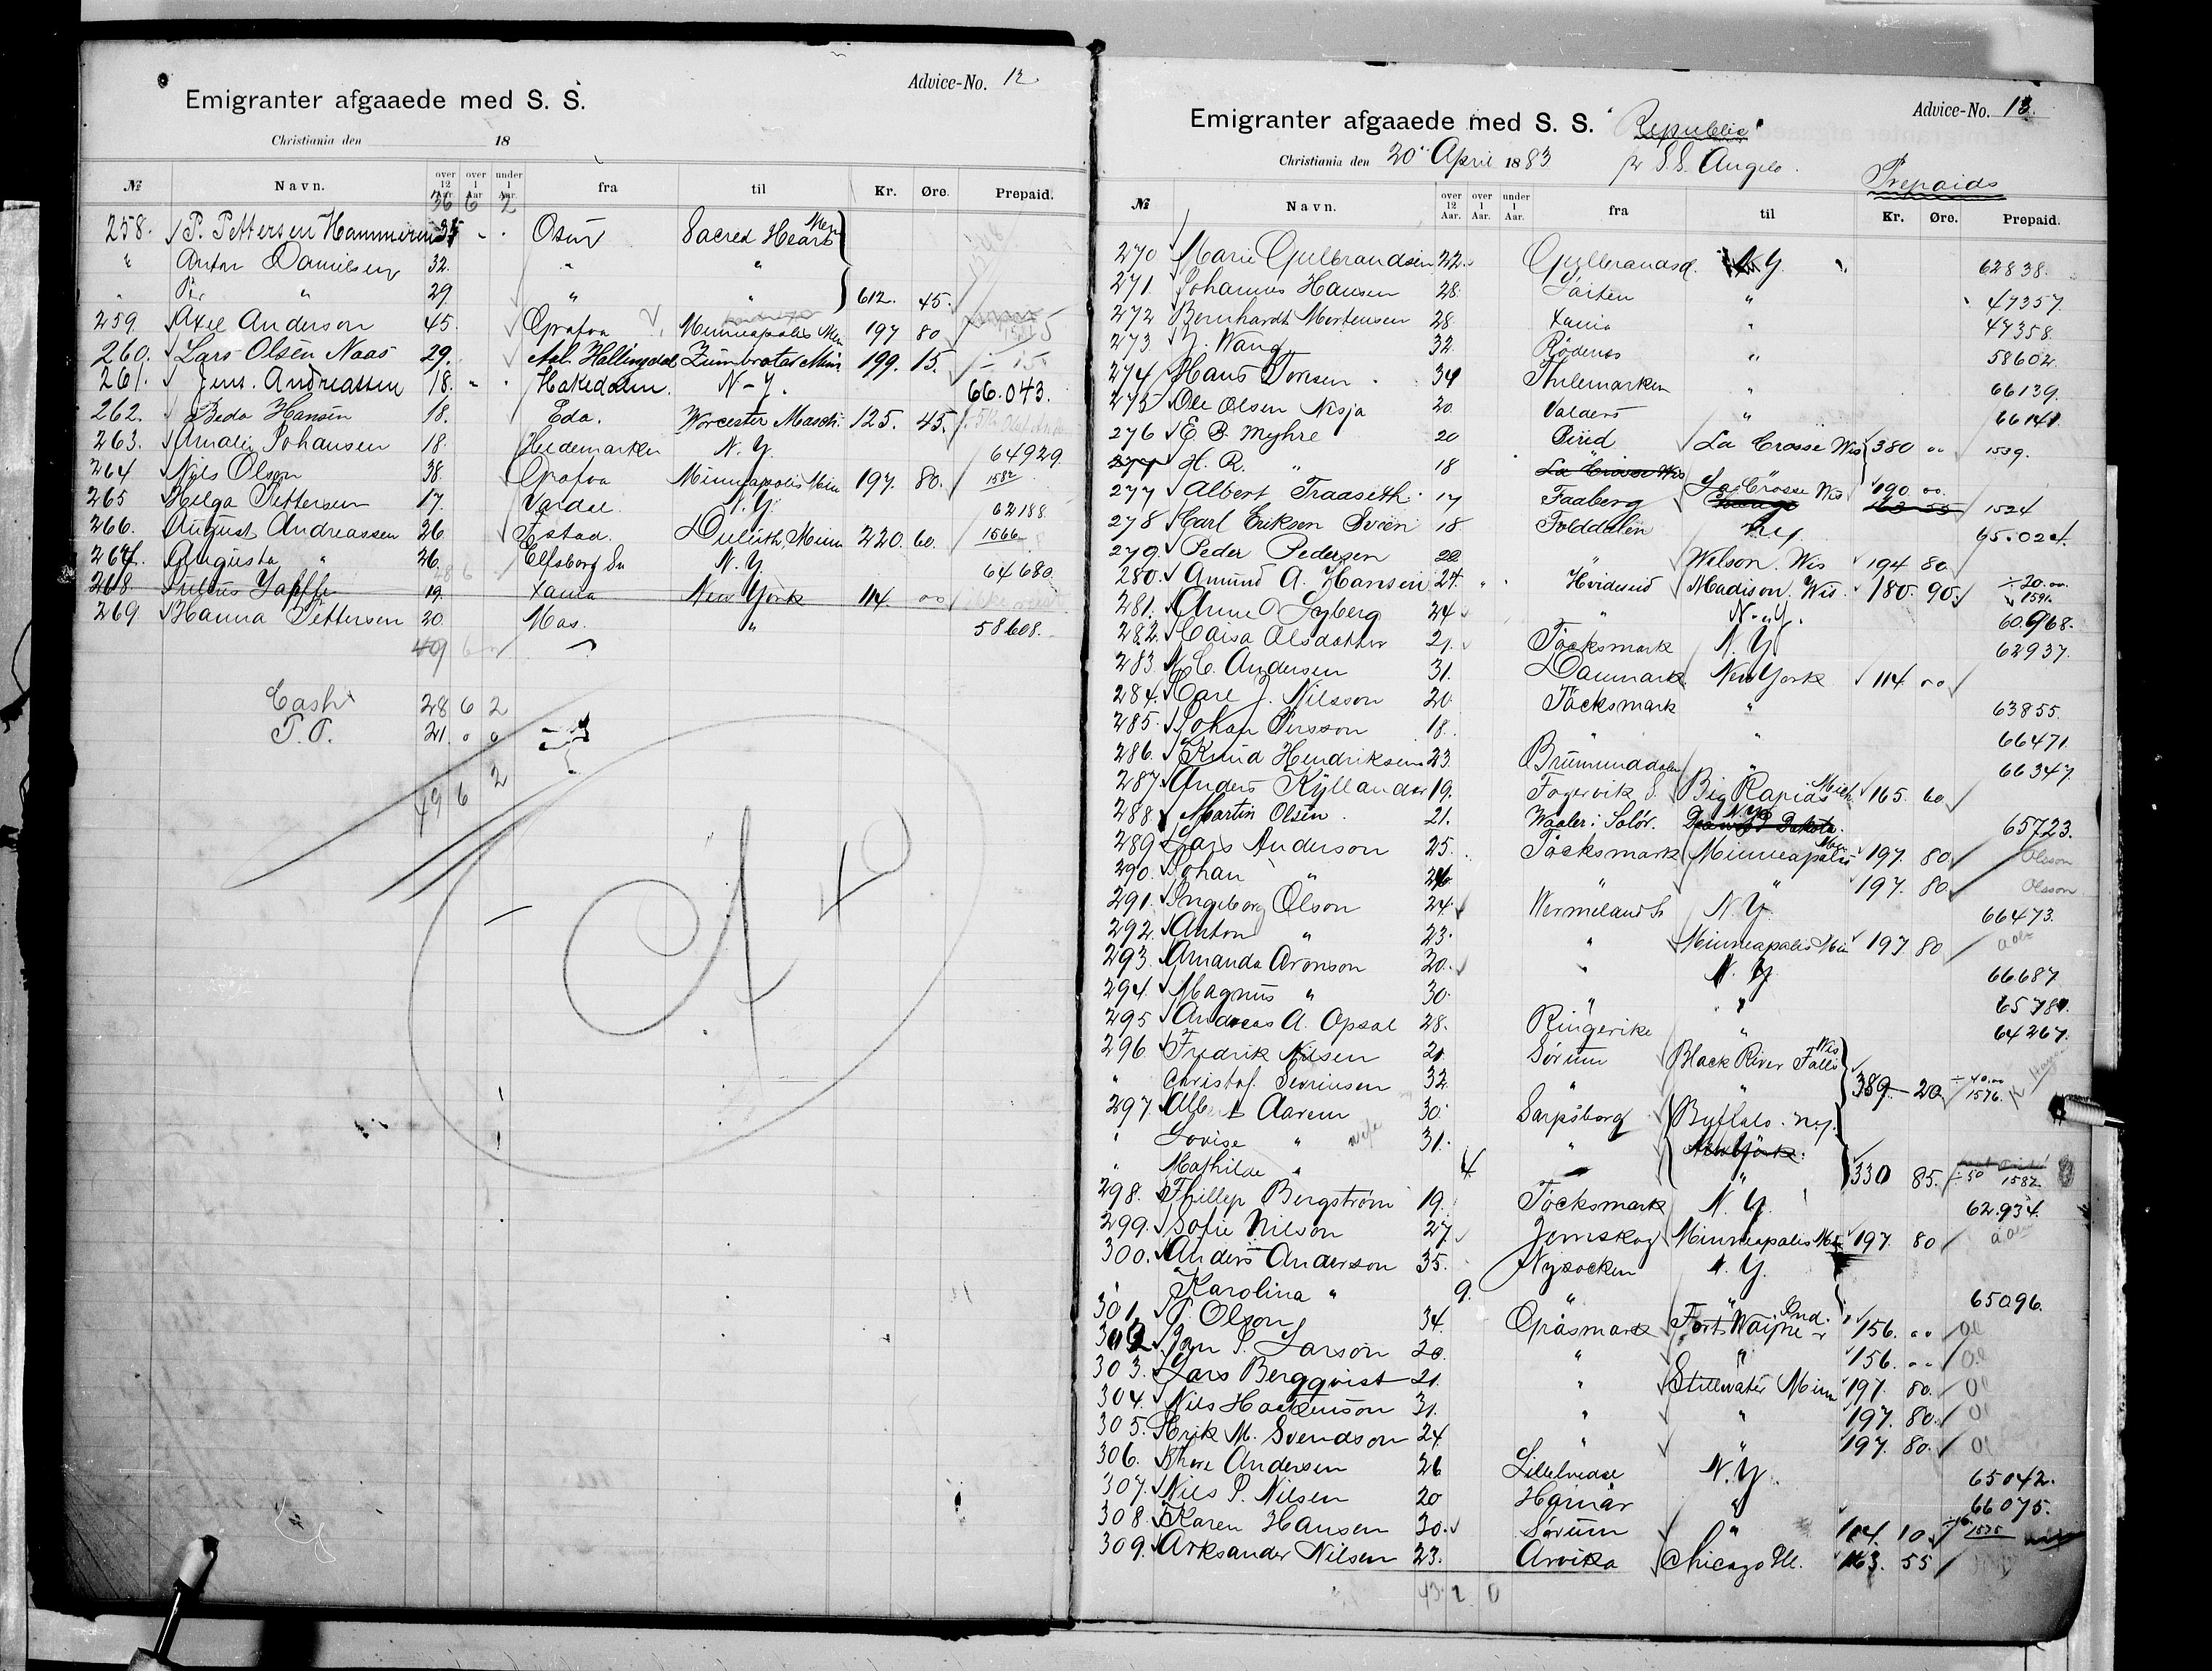 Advice-No. 12
Emigranter afgaaede med S. S.
Christiania den 18
№ Navn. over 12 Aar. over 1 Aar. under 1 Aar. fra til Kr. Øre. Prepaid.
36 6 2
258. P. Pettersen Hammeren 35 Osen Sacred Heart Men
" Anton Danielsen 32. " "
" Per " 29 " " 612. 45.
259 Axel Anderson 45. Grafva Minneapolis Min 197 80
260. Lars Olsen Naas 29. Aal. Hallingdal Zumbrota Min 199. 15.
261. Jens. Andreassen 18. Hakedalen. N-Y. 66.043.
262. Beda Hansen 18. Eda. Worcester Masch. 125. 45.
263. Amalie Johansen 18. Hedemarken N.Y. 64929.
264 Nils Olson 38. Grafva Minneapolis Min 197. 80. 1582
265 Helga Pettersen 17. Vardal. N.Y. 62188.
266. August Andreassen 26. Ystad. Duluth, Minn 220. 60. 1566
267. Augusta " 26. Elfsborg Sn N.Y. 64680.
268. Julius Jaffe 19. Xania New York 114. 00
269 Hanna Pettersen 30. Mas. " 58608.
49 6 2
Cash 28 6 2
P.P. 21. " "
49 6 2
Advice-No. 13.
Emigranter afgaaede med S. S. "Republic"
Christiania den 20' April 1883 pr S.S. Angelo.
Prepaids
№ Navn. over 12 Aar. over 1 Aar. under 1 Aar. fra til Kr. Øre. Prepaid.
270 Marie Gulbrandsen 22. Gulbrandsd. N.Y. 62838.
271. Johannes Hansen 28. Løiten " 47357.
272 Bernhardt Mortensen 28 Xania " 47358.
273. J. Wang 32. Rødenes " 58602.
274 Hans Toresen 34 Thelemarken " 66139.
275 Ole Olsen Nisja 20. Valders " 66141.
276 E. B. Myhre 20 Biri La Crosse Wis 380 " 1539.
277 H. R. " 18 La Crosse Wis
277 Albert Traaseth 17 Faaberg La Crosse Wis 190 00. 163 55 1524
278 Carl Eriksen Sveen 18 Folddalen N.Y. 65.024.
279. Peder Pedersen 22 " Wilson. Wis 194 80
280. Amund A. Hansen 24. Hvideseid Madison. Wis. 180. 90. ÷20.00 1591.
281. Anne Syberg 24 " N.Y. 60.968.
282. Caisa Olsdatter 21. Töcksmark N.Y. 62937.
283 N. C. Andersen 31. Danmark New York 114 00
284. Carl J. Nilsson 20. Töcksmark " 63855.
285. Johan Persson 18. " " 66471.
286. Knud Hendriksen 23 Brummunddalen " 66347.
287. Anders Kyllander 19. Fagervik S. Big Rapids Mich 165. 60
288. Martin Olsen 21. Waaler i Solør. N.Y. 65723.
289 Lars Anderson 25. Töcksmark Minneapolis Min 197. 80 Olsson
290. Johan " 26 " " 197. 80 Olsson
291. Ingeborg Olson 24. Wermeland S. N.Y. 66473.
292. Anton " 23. " Minneapolis Min 197 80
293. Amanda Aronson 20. " N.Y. 66687
294. Magnus " 30. " " 65781.
295 Andreas A. Opsal 28. Ringerike " 64267.
296. Fredrik Nilsen 21. Sørum Black River Falls Wis
" Christof. Sevrinsen 32 " " 389 20 ÷40.00 1576.
297. Albert Aarem 30. Sarpsborg Buffalo. N.Y.
" Lovise " wife 31. " New York.
" Mathilde " 4 " 330 85. ÷50 1582
298. Phillip Bergström 19. Töcksmark N.Y. 62.934.
299. Sofie Nilson 27 Jernskog Minneapolis Min 197. 80
300. Anders Anderson 35. Nysocken N.Y.
" Karolina " 9. " " 65096.
301. P. Olson 34. Gräsmark Fort Wayne Ind. 156. "
302 Jan P. Larson 20. " " 156. "
303. Lars Bergqvist 21. " Stillwater Minn 197. 80.
304. Nils Haakenson 31. " " 197. 80.
305. Erik M. Svendson 24. " " 197. 80.
306. Thore Andersen 26 Lillehvedse N.Y. 65042.
307. Nils P. Nilsen 20 Hamar " 66075.
308. Karen Hansen 30. Sørum " 104. 10 1535
309. Aleksander Nilsen 23. Arvika Chicago Ill. 163. 55
43 2 0